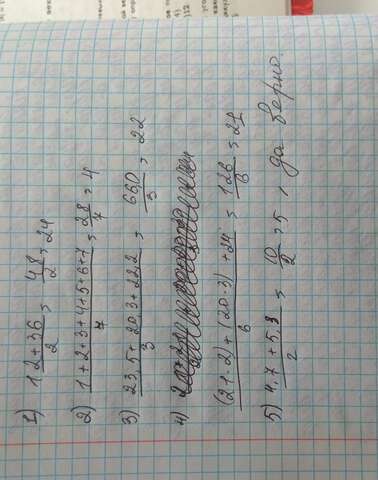 1) 12+36/2 = 48/2 = 24
2) 1+2+3+4+5+6+7/7 = 28/7 = 4
3) 23,5+20,3+22,2/3 = 66,0/3 = 22
4)
(21·2)+(20·3)+24/6 = 126/6 = 21
5) 4,7+5,3/2 = 10/2 = 5, да верно.